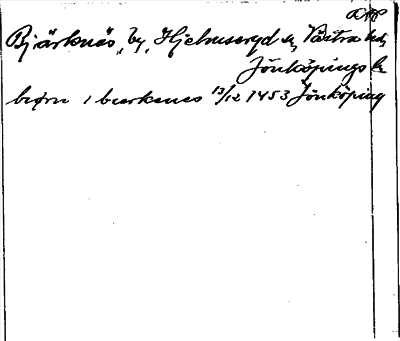 Bjärknäs, by, Hjelmseryd sn, Västra hd,
Jönköpings l.
biørn i bierkenes 13/12 1453 Jönköping